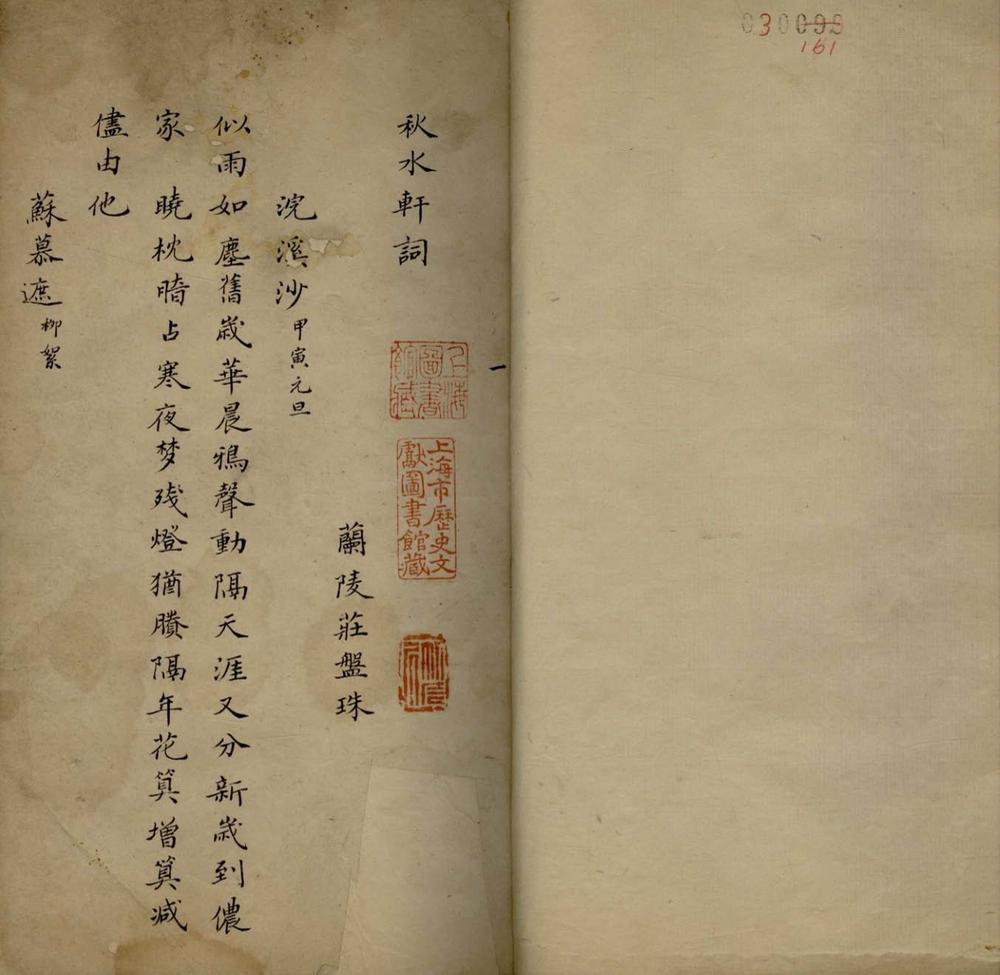 030098
161
秋水軒詞
一
上海圖書館藏
上海市歷史文獻圖書館藏
蘭陵莊盤珠
浣溪沙 甲寅元旦
似雨如塵舊歲華晨鴉聲動隔天涯又分新歲到儂
家 曉枕暗占寒夜梦殘燈猶賸隔年花算增算減
儘由他
蘇慕遮 柳絮